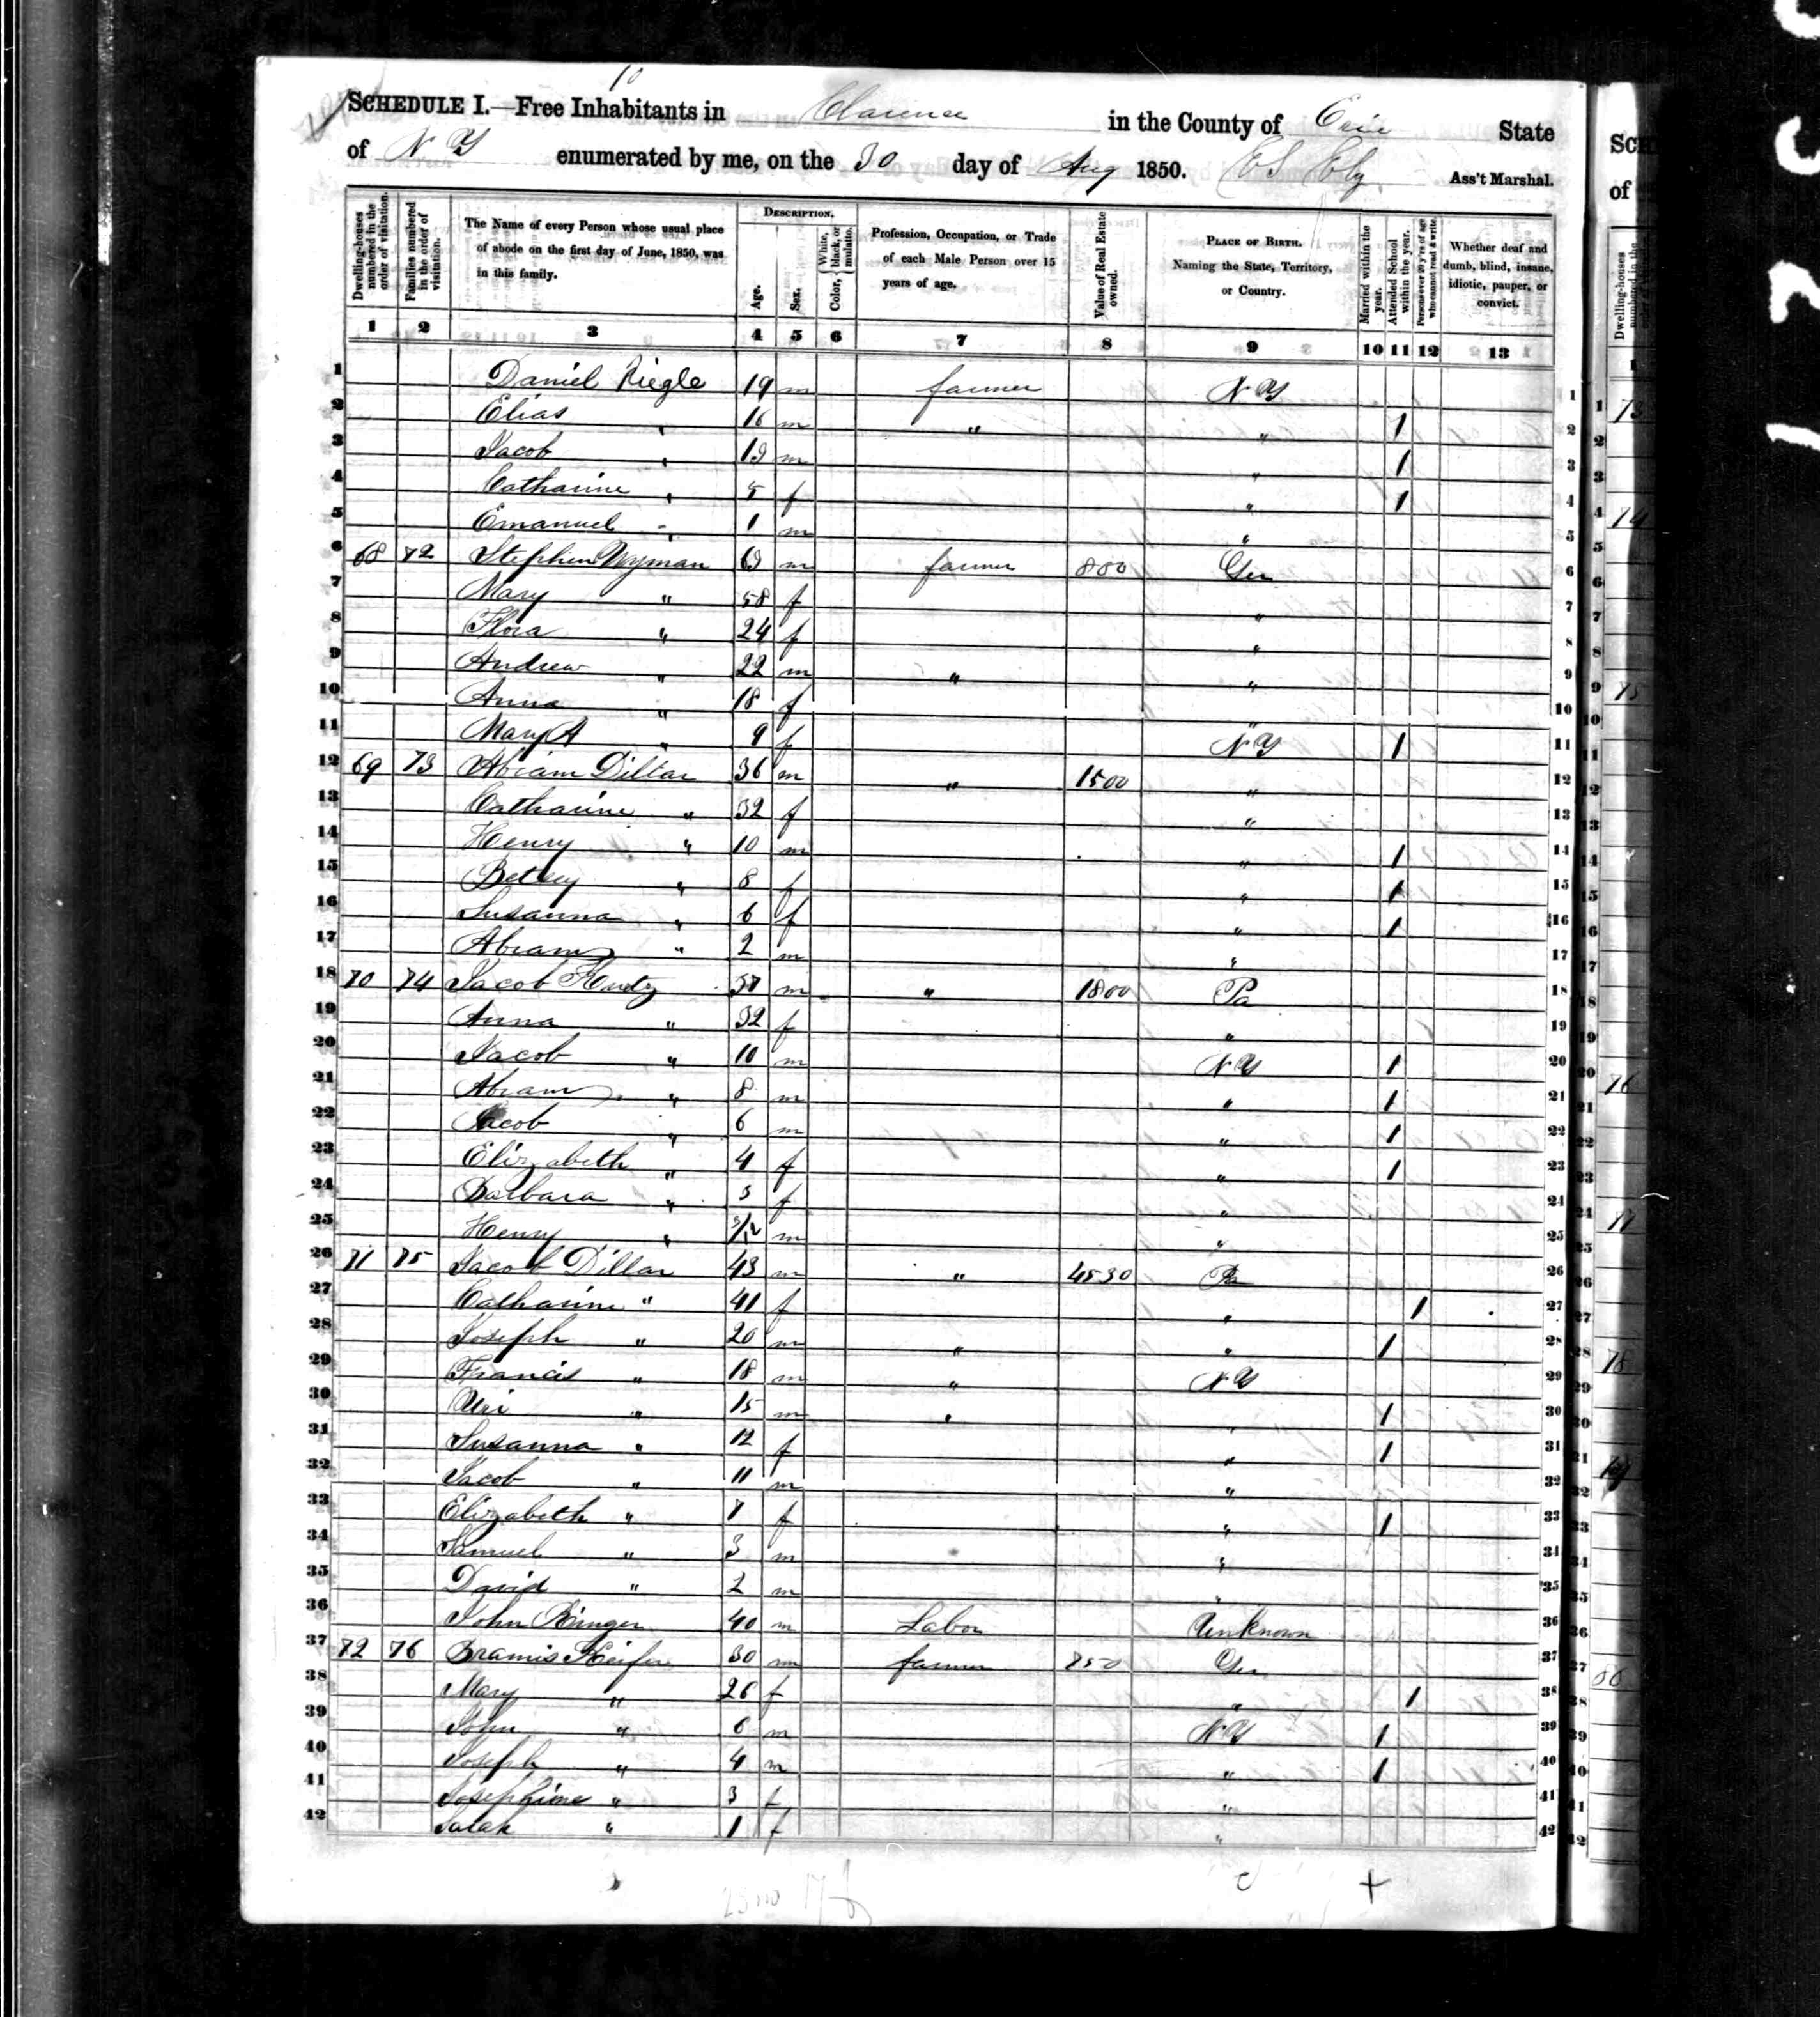 10
SCHEDULE I.—Free Inhabitants in Clarence in the County of Erie State
of N Y enumerated by me, on the 30 day of Aug 1850. E S Ely Ass't Marshal.
Dwelling-houses numbered in the order of visitation.
Families numbered in the order of visitation.
The Name of every Person whose usual place of abode on the first day of June, 1850, was in this family.
DESCRIPTION.
Age.
Sex.
Color, { White, black, or mulatto.
Profession, Occupation, or Trade of each Male Person over 15 years of age.
Value of Real Estate owned.
PLACE OF BIRTH. Naming the State, Territory, or Country.
Married within the year.
Attended School within the year.
Persons over 20 y'rs of age who cannot read & write.
Whether deaf and dumb, blind, insane, idiotic, pauper, or convict.
1 2 3 4 5 6 7 8 9 10 11 12 13
1 Daniel Riegle 19 m farmer N Y 1
2 Elias " 16 m " " / 2
3 Jacob " 13 m " / 3
4 Catharine " 5 f " / 4
5 Emanuel " 1 m " 5
6 68 72 Stephen Wyman 63 m farmer 800 Ger 6
7 Mary " 58 f " 7
8 Flora " 24 f " 8
9 Andrew " 22 m " " 9
10 Anna " 18 f " 10
11 Mary A " 9 f N Y / 11
12 69 73 Abram Diltar 36 m " 1500 " 12
13 Catharine " 32 f " 13
14 Henry " 10 m " / 14
15 Betsey " 8 f " / 15
16 Susanna " 6 f " / 16
17 Abram " 2 m " 17
18 70 74 Jacob 37 m " 1800 Pa 18
19 Anna " 32 f " 19
20 Jacob " 10 m N Y / 20
21 Abram " 8 m " / 21
22 Jacob " 6 m " / 22
23 Elizabeth " 4 f " / 23
24 Barbara " 3 f " 24
25 Henry " 3/12 m " 25
26 71 75 Jacob Diltar 43 m " 4530 Pa 26
27 Catharine " 41 f " / 27
28 Joseph " 20 m " " / 28
29 Francis " 18 m " N Y 29
30 Uri " 15 m " " / 30
31 Susanna " 12 f " / 31
32 Jacob " 11 m " 32
33 Elizabeth " 7 f " / 33
34 Samuel " 3 m " 34
35 David " 2 m " 35
36 John 40 m Labor Unknown 36
37 72 76 30 m farmer 750 Ger 37
38 Mary " 26 f " / 38
39 John " 6 m N Y / 39
40 Joseph " 4 m " / 40
41 Josephine " 3 f " 41
42 Salah " 1 f " 42